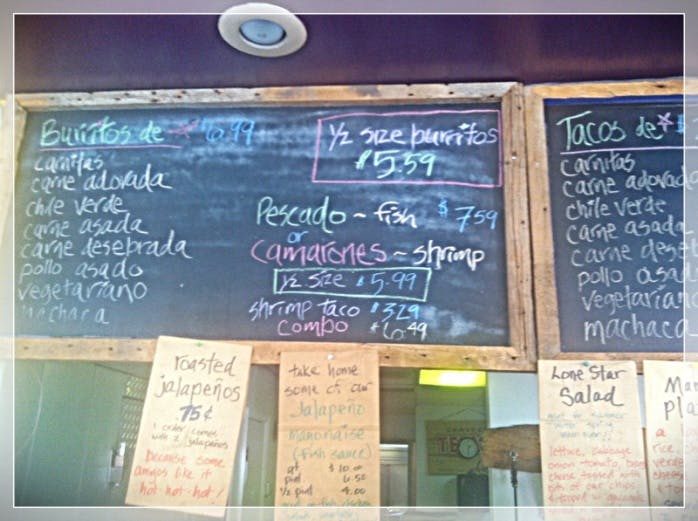 Burritos de * $6.99
carnitas
carne adovada
chile verde
carne asada
carne desebrada
pollo asado
vegetariano
machaca
1/2 size burritos
$5.59
Pescado ~ fish $7.59
or
Camarones ~ shrimp
1/2 size $5.99
shrimp taco $3.29
combo $6.49
Tacos de *
carnitas
carne adovada
chile verde
carne asada
carne dese
pollo asa
vegetarian
machaca
roasted
jalapeños
75¢
1 order comes
with 2 jalapeños
because some
amigos like it
hot-hot-hot!
take home
some of our
Jalapeño
mayonaise
(fish sauce)
qt $10.00
pint 6.50
1/2 pint 4.00
Lone Star
Salad
lettuce, cabbage
onion tomato,
cheese topped with
bits of our chips
Ma
pla
a
rice
verde
cheese